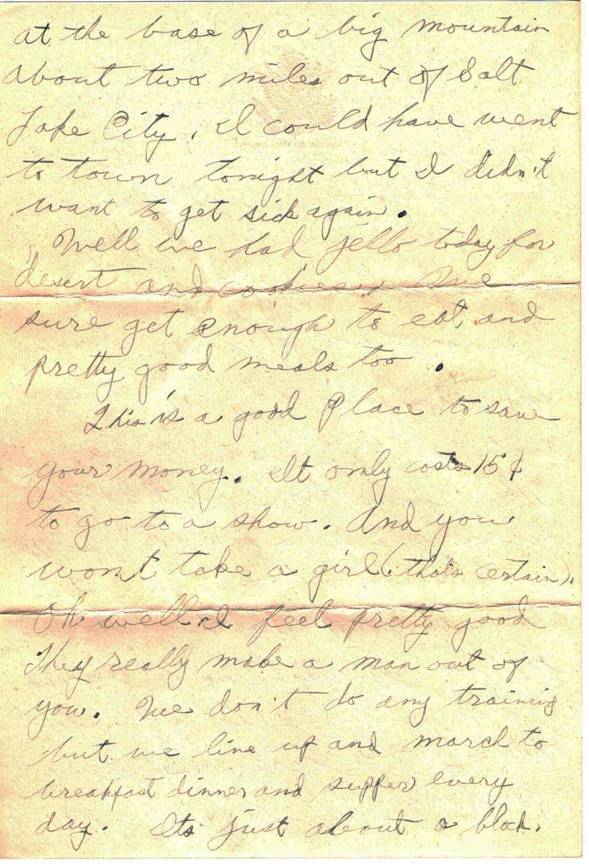 at the base of a big mountain
about two miles out of Salt
Lake City. I could have went
to town tonight but I didn't
want to get sick again.
Well we had jello today for
desert and cookies. We
sure get enough to eat and
pretty good meals too.
This is a good place to save
your money. It only costs 15¢
to go to a show. And you
won't take a girl (thats certain).
Oh well I feel pretty good
They really make a man out of
you. We don't do any training
but we line up and march to
breakfast dinner and supper every
day. Its just about a block.